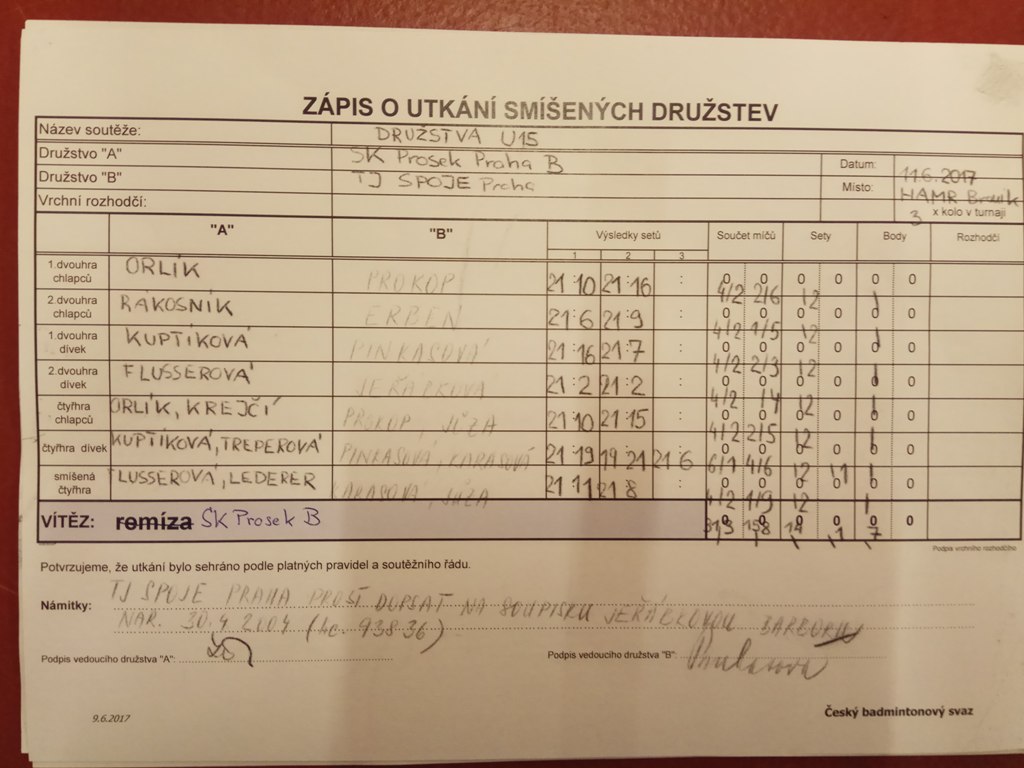 ZÁPIS O UTKÁNÍ SMÍŠENÝCH DRUŽSTEV
Název soutěže: DRUŽSTVA U15
Družstvo "A" SK Prosek Praha B Datum: 11.6.2017
Družstvo "B" TJ SPOJE Praha Místo: HAMR Braník
Vrchní rozhodčí: 3 x kolo v turnaji
"A" "B" Výsledky setů Součet míčů Sety Body Rozhodčí
1 2 3
1.dvouhra chlapců ORLÍK PROKOP 21:10 21:16 : 42 26 2 0 1 0
2.dvouhra chlapců RÁKOSNÍK ERBEN 21:6 21:9 : 42 15 2 0 1 0
1.dvouhra dívek KUPTÍKOVÁ PINKASOVÁ 21:16 21:7 : 42 23 2 0 1 0
2.dvouhra dívek FLUSSEROVÁ JEŘÁBKOVÁ 21:2 21:2 : 42 4 2 0 1 0
čtyřhra chlapců ORLÍK, KREJČÍ PROKOP, JŮZA 21:10 21:15 : 42 25 2 0 1 0
čtyřhra dívek KUPTÍKOVÁ, TREPEROVÁ PINKASOVÁ, KARASOVÁ 21:19 19:21 21:6 61 46 2 1 1 0
smíšená čtyřhra FLUSSEROVÁ, LEDERER KARASOVÁ, JŮZA 21:11 21:8 : 42 19 2 0 1 0
VÍTĚZ: remíza SK Prosek B 313 158 14 1 7 0
Podpis vrchního rozhodčího
Potvrzujeme, že utkání bylo sehráno podle platných pravidel a soutěžního řádu.
Námitky: TJ SPOJE PRAHA PROSÍ DOPSAT NA SOUPISKU JEŘÁBKOVOU BARBORU
NAR. 30.4 2104 (ač. 93836)
Podpis vedoucího družstva "A": Podpis vedoucího družstva "B":
9.6.2017
Český badmintonový svaz